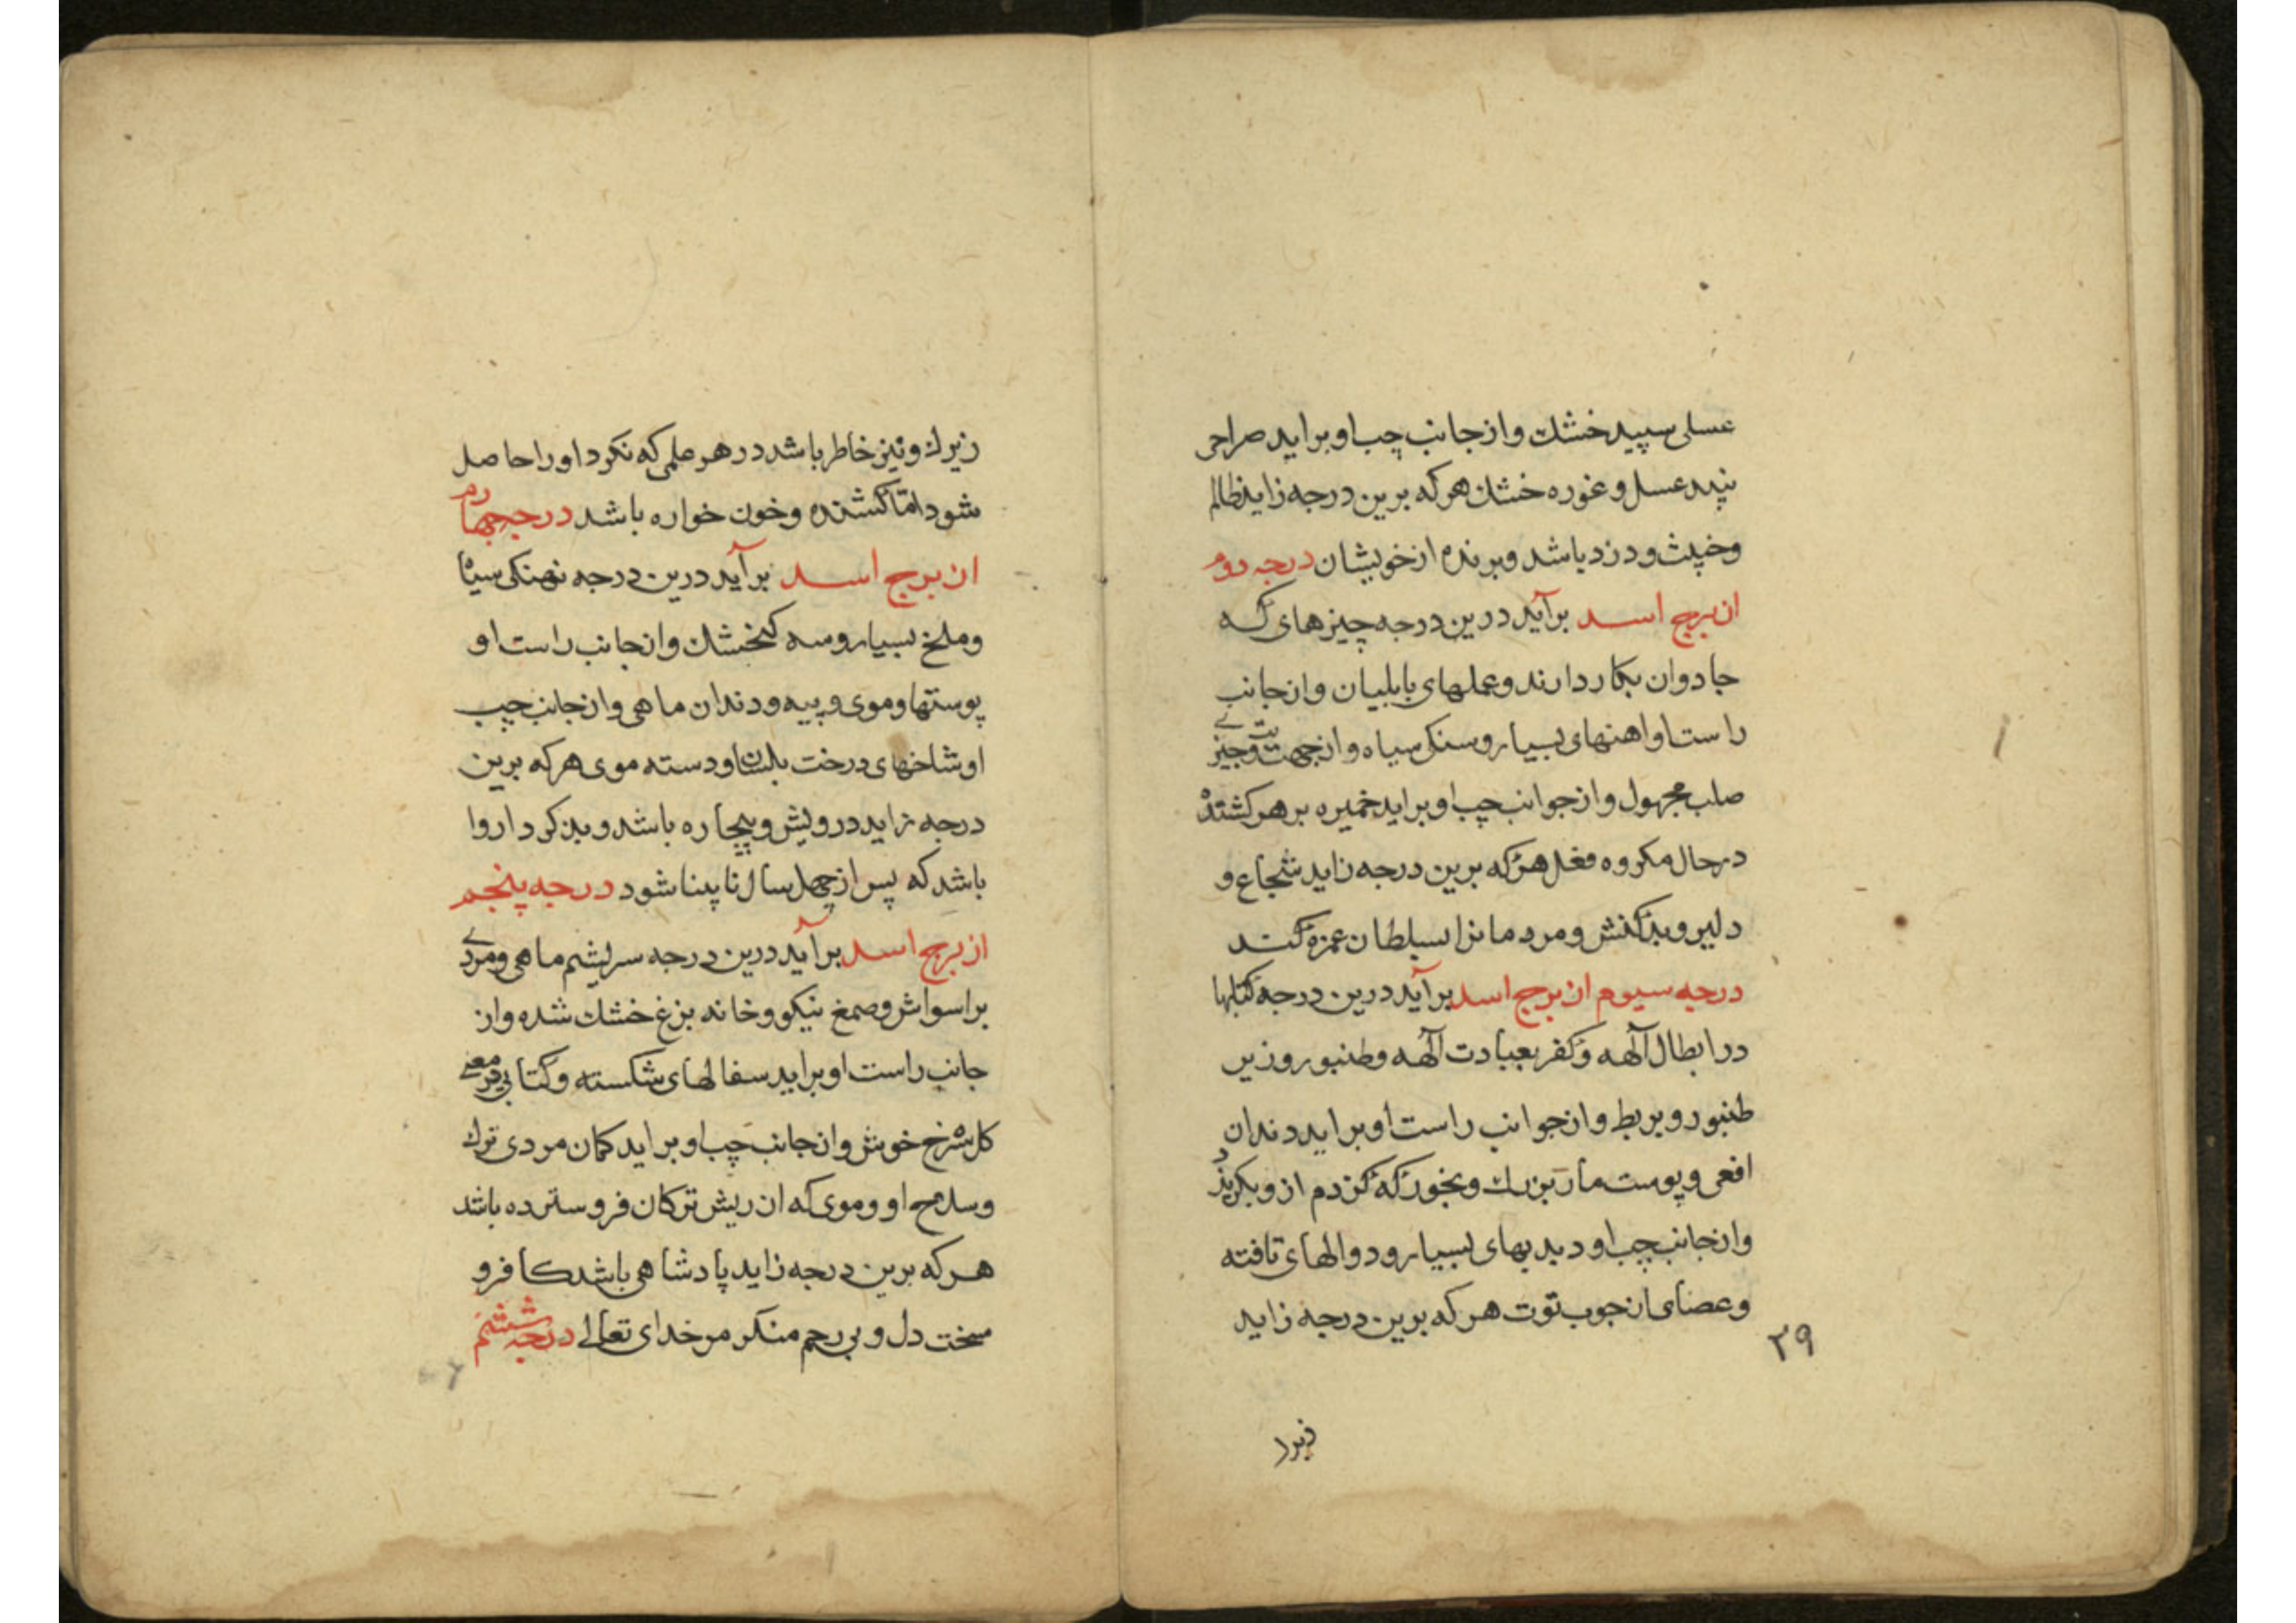 عسلی سپید خشك و از جانب چپ او براید صراحی
نبید عسل و غوره خشك هر که برین درجه زاید ظالم
و خبیث و دزد باشد و برنده از خویشان درجه دوم
از برج اسد برآید درین درجه چیزهای که
جادوان بکار دارند و عملهای بابلیان و از جانب
راست او اهنهای بسیار و سنك سیاه و از جهت
صلب مجهول و از جوانب چپ او براید خمیره بر هر کشتهٔ
در حال مکروه فعل هر که برین درجه زاید شجاع و
دلیر و بد کنش و مردمانرا سلطان غمزه کند
درجه سیوم از برج اسد برآید درین درجه کتابها
در ابطال آلهه و کفر بعبادت آلهه و طنبور و زیر
طنبور و بربط و از جوانب راست او براید دندان
افعی و پوست مار بزرك و بخور که کژدم ازو بکریزد
و از جانب چپ او دیدیهای بسیار و دوالهای تافته
و عصای از چوب توت هر که برین درجه زاید
۳۹
زیرا
زیرك و تیز خاطر باشد در هر علمی که نکرد او را حاصل
شود اما کشنده و خون خواره باشد درجه چهارم
از برج اسد برآید درین درجه نهنکی سیاه
و ملخ بسیار و سه کنجشك و از جانب راست او
پوستها و موی و پیه و دندان ماهی و از جانب چپ
او شاخهای درخت بلسان و دسته موی هر که برین
درجه زاید درویش و بیچاره باشد و بد کردار روا
باشد که پس از چهل سال نا بینا شود درجه پنجم
از برج اسد برآید درین درجه سریشم ماهی و مردی
بر اسواش و صمغ نیکو و خانه بزغ خشك شده و از
جانب راست او براید سفالهای شکسته و کتابی در معنی
کل سرخ خوش و از جانب چپ او براید کمان مردی ترك
و سلاح او و موی که از ریش ترکان فرو سترده باشد
هر که برین درجه زاید پادشاهی باشد کافر و
سخت دل و بی رحم منکر مر خدای تعالی درجه ششم